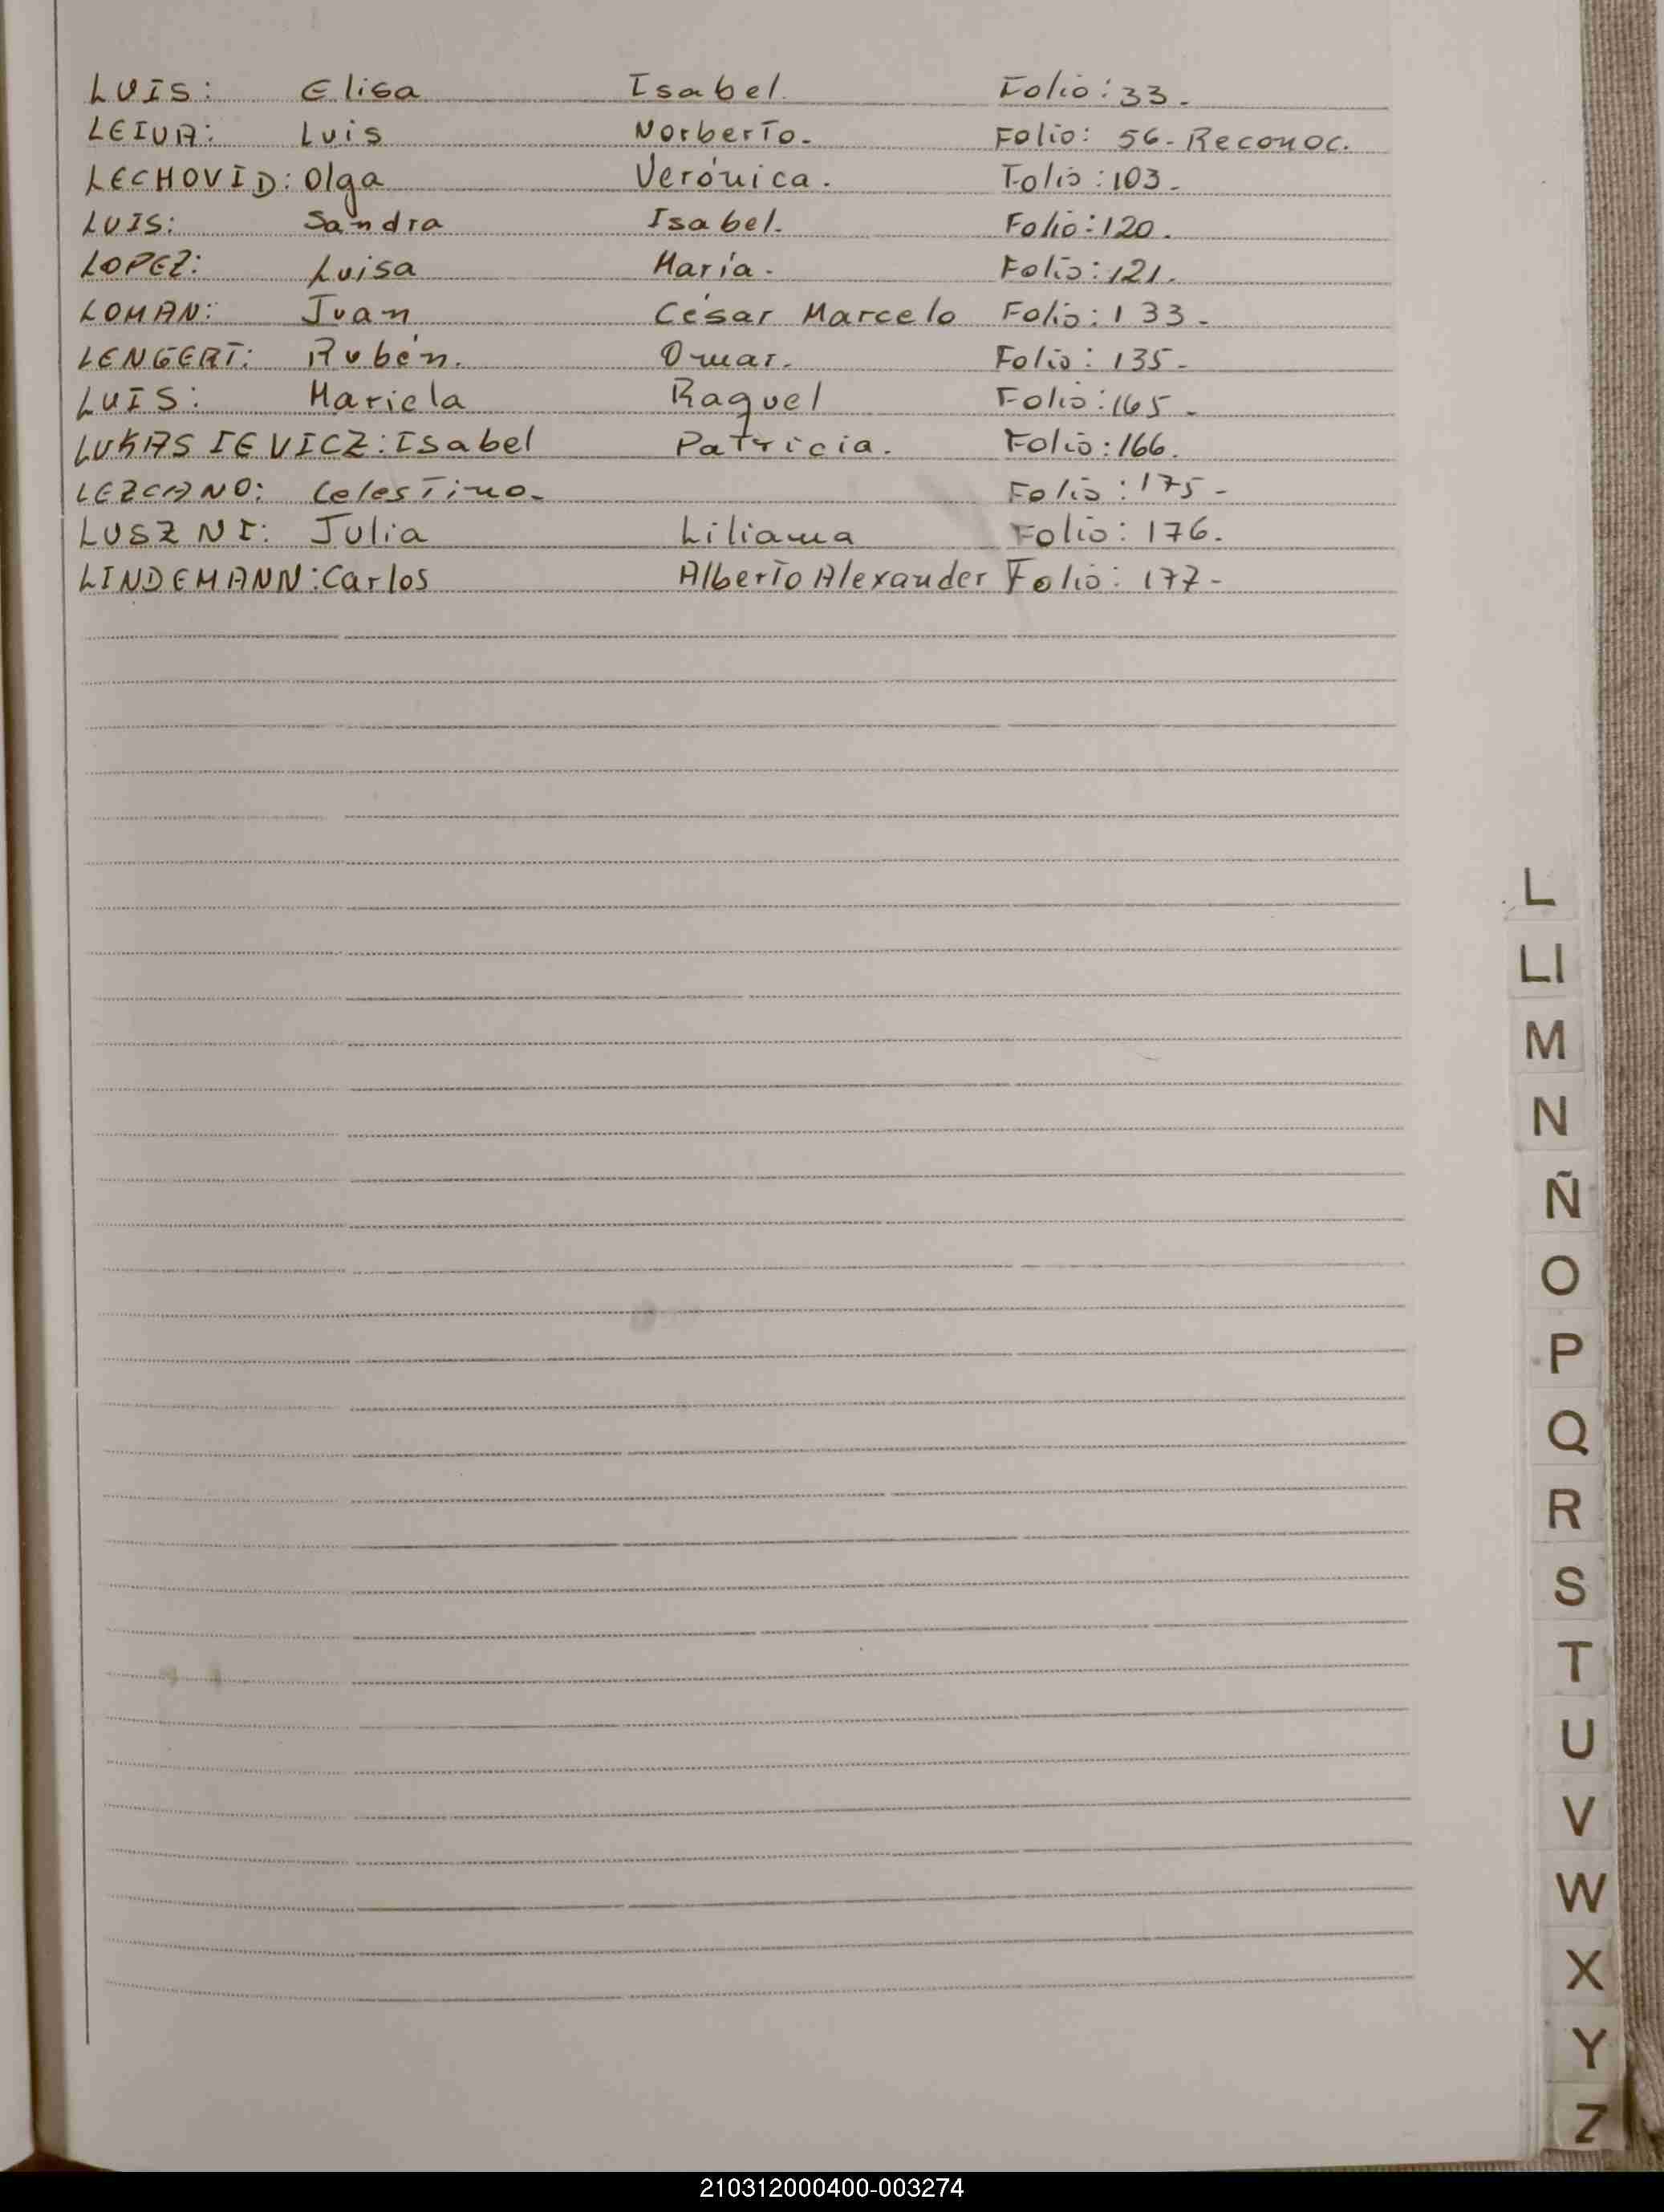 LUIS: Elisa Isabel. Folio: 33.
LEIVA: Luis Norberto. Folio: 56- Reconoc.
LECHOVID: Olga Verónica. Folio: 103-
LUIS: Sandra Isabel. Folio: 120.
LOPEZ: Luisa María. Folio: 121.
LOMAN: Juan César Marcelo Folio: 133-
LENGERT: Rubén. Omar. Folio: 135-
LUIS: Mariela Raquel Folio: 165-
LUKASIEVICZ: Isabel Patricia. Folio: 166.
LEZCANO: Celestino- Folio: 175-
LUSZNI: Julia Liliana Folio: 176.
LINDEMANN: Carlos Alberto Alexander Folio: 177-
L
Ll
M
N
Ñ
O
P
Q
R
S
T
U
V
W
X
Y
Z
210312000400-003274